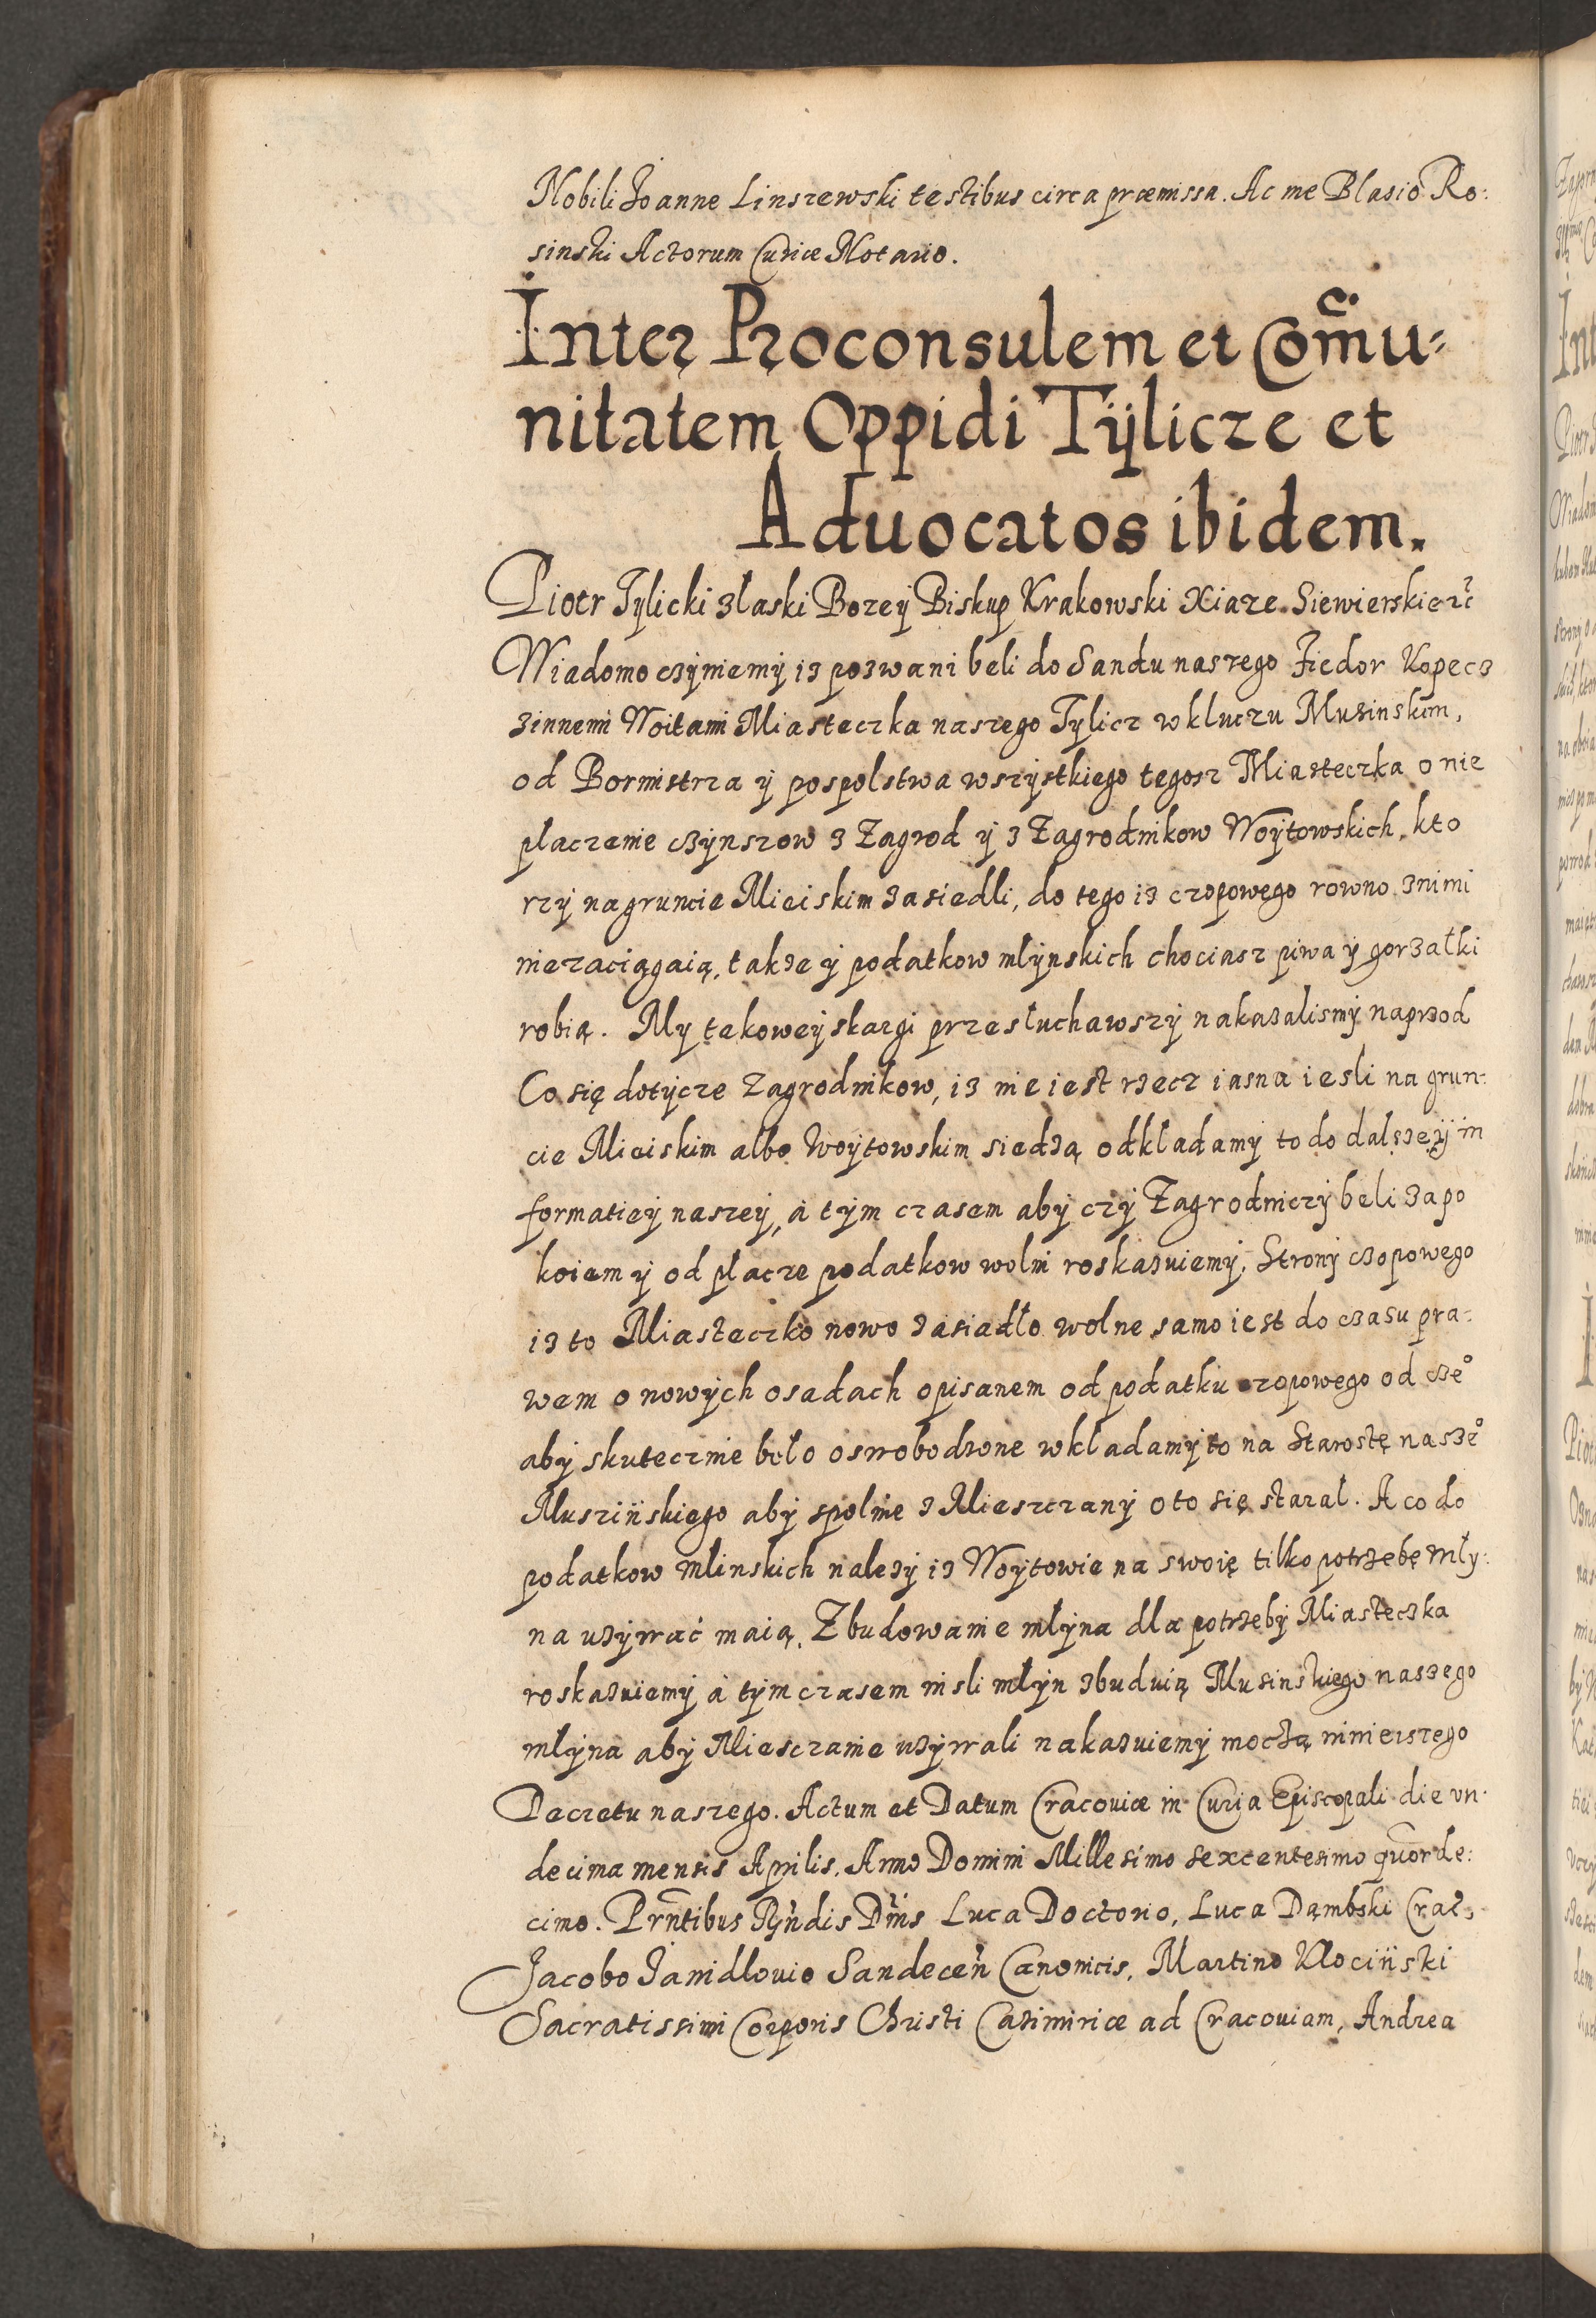 Nobili Joanne Linszewski testibus circa præmissa. Ac me Blasio Ro:
sinski Actorum Curiæ Notario.
Inter Proconsulem et Com̃u⸗
nitatem Oppidi Tÿlicze et
Aduocatos ibidem.
Piotr Tylicki złaski Bozeÿ Biskup Krakowski Xiaze Siewierskie ꝛc
Wiadomo czÿniemÿ iz pozwani beli do Sandu naszego Fiedor Kopecz
zinnemi Woitami Miasteczka naszego Tylicz w kluczu Musinskim,
od Bormistrza ÿ pospolstwa wszÿstkiego tegosz Miasteczka o nie
płaczenie czÿnszow z Zagrod ÿ z Zagrodnikow Woÿtowskich, kto
rzÿ na gruncie Mieiskim zasiedli, do tego iz czopowego rowno znimi
niezaciągaią, takze ÿ podatkow młÿnskich chociasz piwa ÿ gorzałki
robią. My takoweÿ skargi przesłuchawszÿ nakazalismÿ naprzod
Co się dotÿcze Zagrodnikow, iz nie iest rzecz iasna iesli na grun:
cie Mieiskim albo Woÿtowskim siedzą odkładamÿ to do dalszeÿ in
formatieÿ naszeÿ, á tÿm czasem abÿ czÿ Zagrodniczÿ beli zapo
koiem ÿ od płacze podatkow wolni roskazuiemÿ. Stronÿ czopowego
iz to Miasteczko nowo zasiadło wolne samo iest do czasu pra:
wem o nowÿch osadach opisanem od podatku czopowego od cze°
abÿ skutecznie beło oswobodzone wkładamÿ to na Starostę nasze°
Muszińskiego abÿ spolnie z Mieszczanÿ oto się starał. A co do
podatkow mlinskich nalezÿ iz Woÿtowie na swoię tilko potrzebę mły:
na uzÿwać maią, Zbudowanie młÿna dla potrzebÿ Miasteczka
roskazuiemÿ á tÿm czasem nisli młÿn zbuduią Musinskiego naszego
młÿna abÿ Miesczanie uzÿwali nakazuiemÿ moczą ninieiszego
Decretu naszego. Actum et Datum Cracouiæ in Curia Episcopali die vn:
decima mensis Aprilis, Anno Domini Millesimo sexcentesimo quor̃de:
cimo. Prñtibus Rṽndis Dñis Luca Doctorio, Luca Dąmbski Crac̃,
Jacobo Janidlouio Sandeceñ Canonicis, Martino Kłociński
Sacratissimi Corporis Christi Casimiriæ ad Cracouiam, Andrea